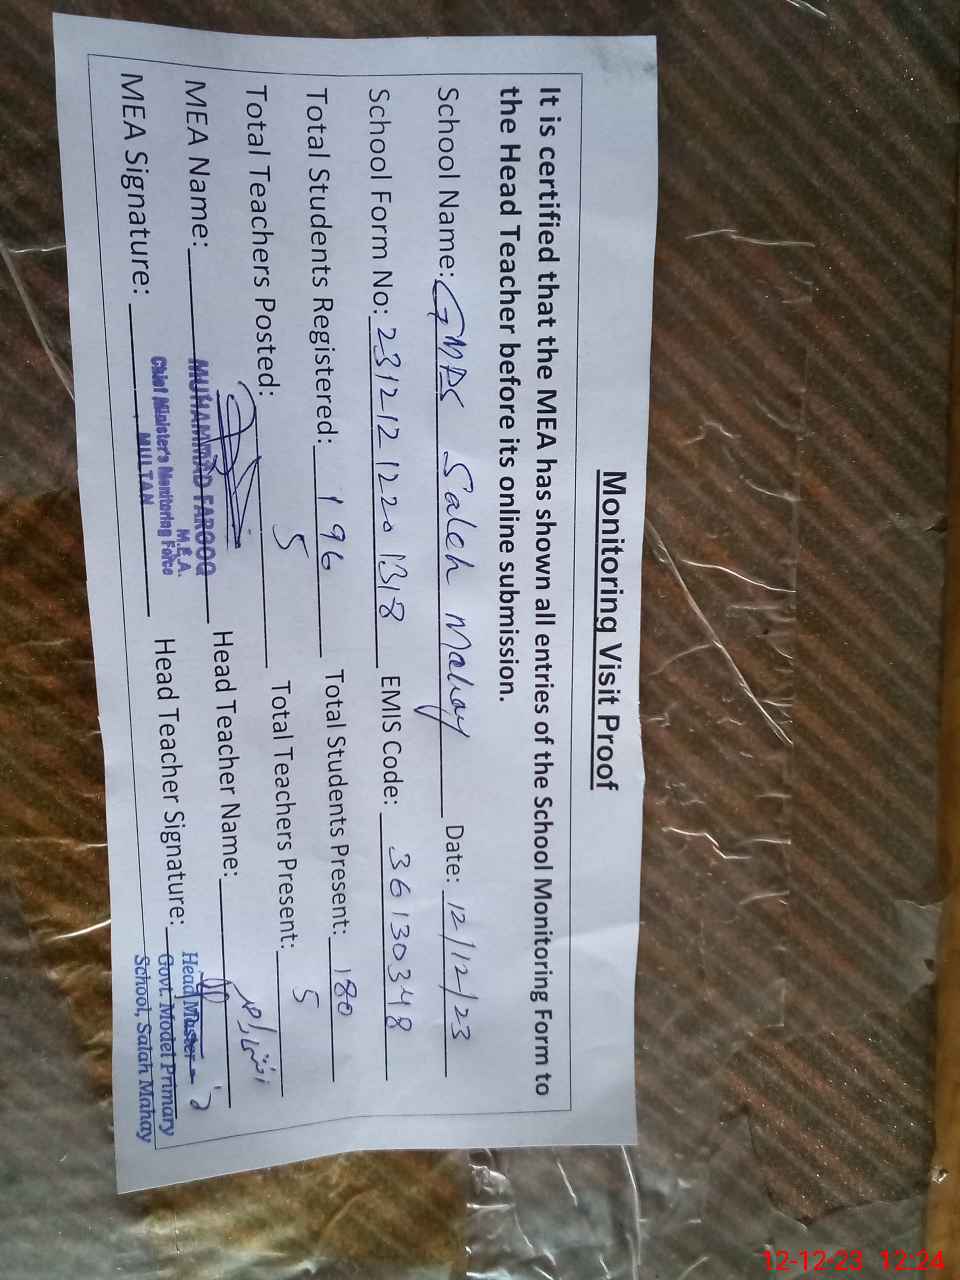 Monitoring Visit Proof
It is certified that the MEA has shown all entries of the School Monitoring Form to
the Head Teacher before its online submission.
School Name: GMPS Saleh Mahay Date: 12/12/23
School Form No: 23121212201318 EMIS Code: 36130348
Total Students Registered: 196 Total Students Present: 180
Total Teachers Posted: 5 Total Teachers Present: 5
MEA Name: MUHAMMAD FAROOQ Head Teacher Name:
M.E.A.
Chief Minister's Monitoring Force
MULTAN
MEA Signature: Head Teacher Signature:
Head Master
Govt. Model Primary
School, Salah Mahay
12-12-23 12:24